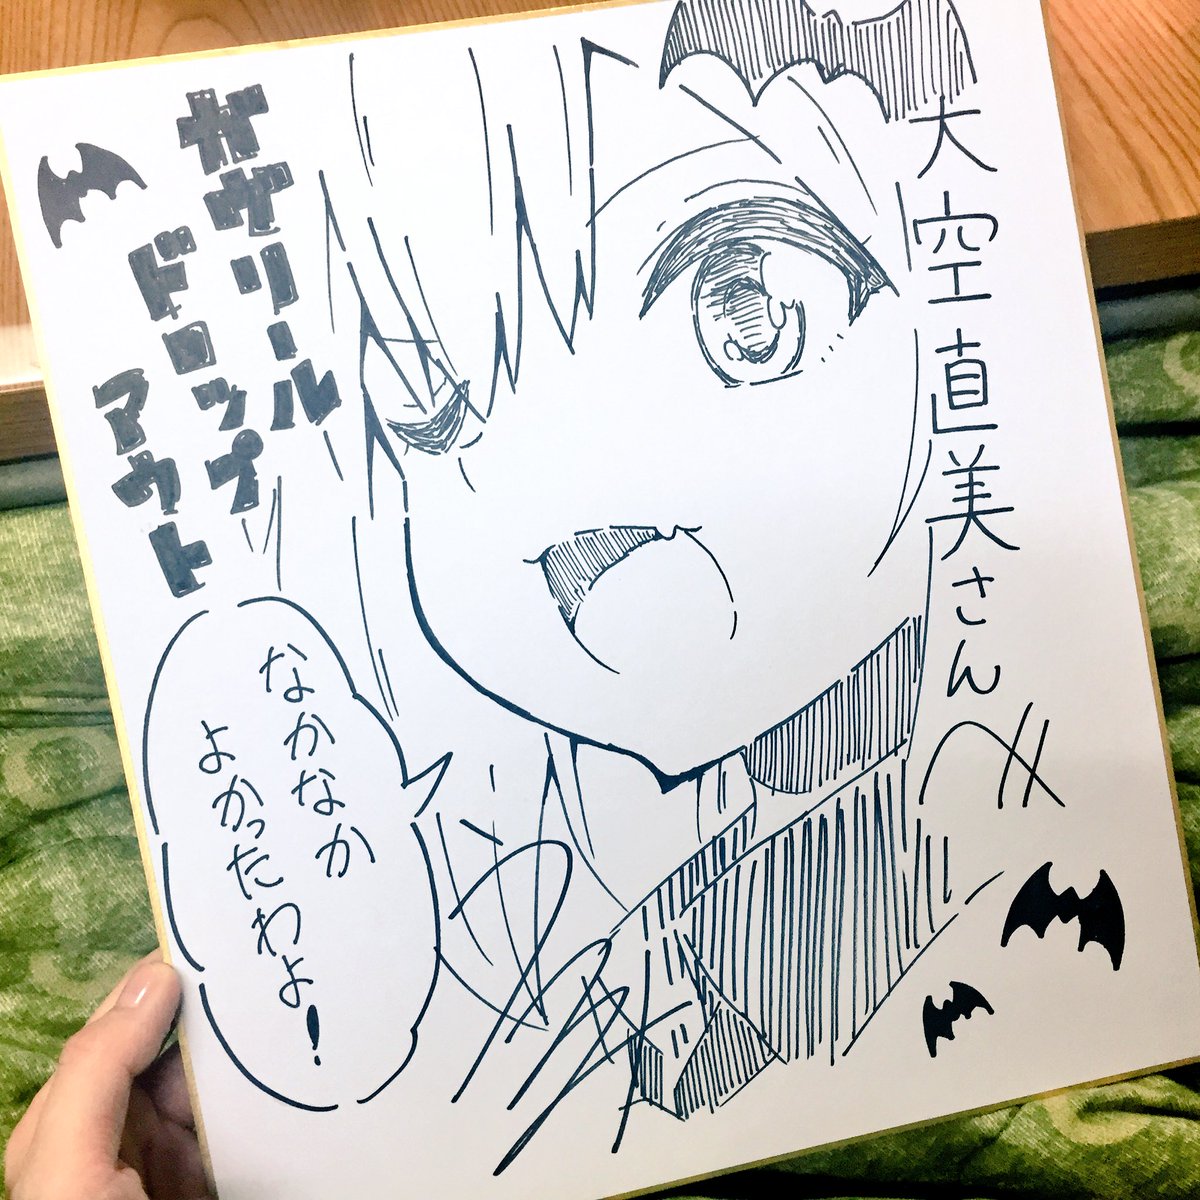 大空直美さんへ
ガヴリール
ドロップ
アウト
なかなか
よかったわよ!